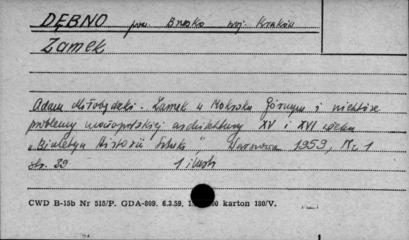 DĘBNO pow. Brzesko woj. Kraków
Zamek
Adam Miłobędzki. Zamek w Mokrsku Górnym i niektóre
problemy małopolskiej architektury XV i XVI wieku
"Biuletyn Historii Sztuki" Warszawa 1959, Nr. 1
str. 29 1 ilustr.
CWD B-15b Nr 515/P. GDA-809. 6.3.59. karton 180/V.